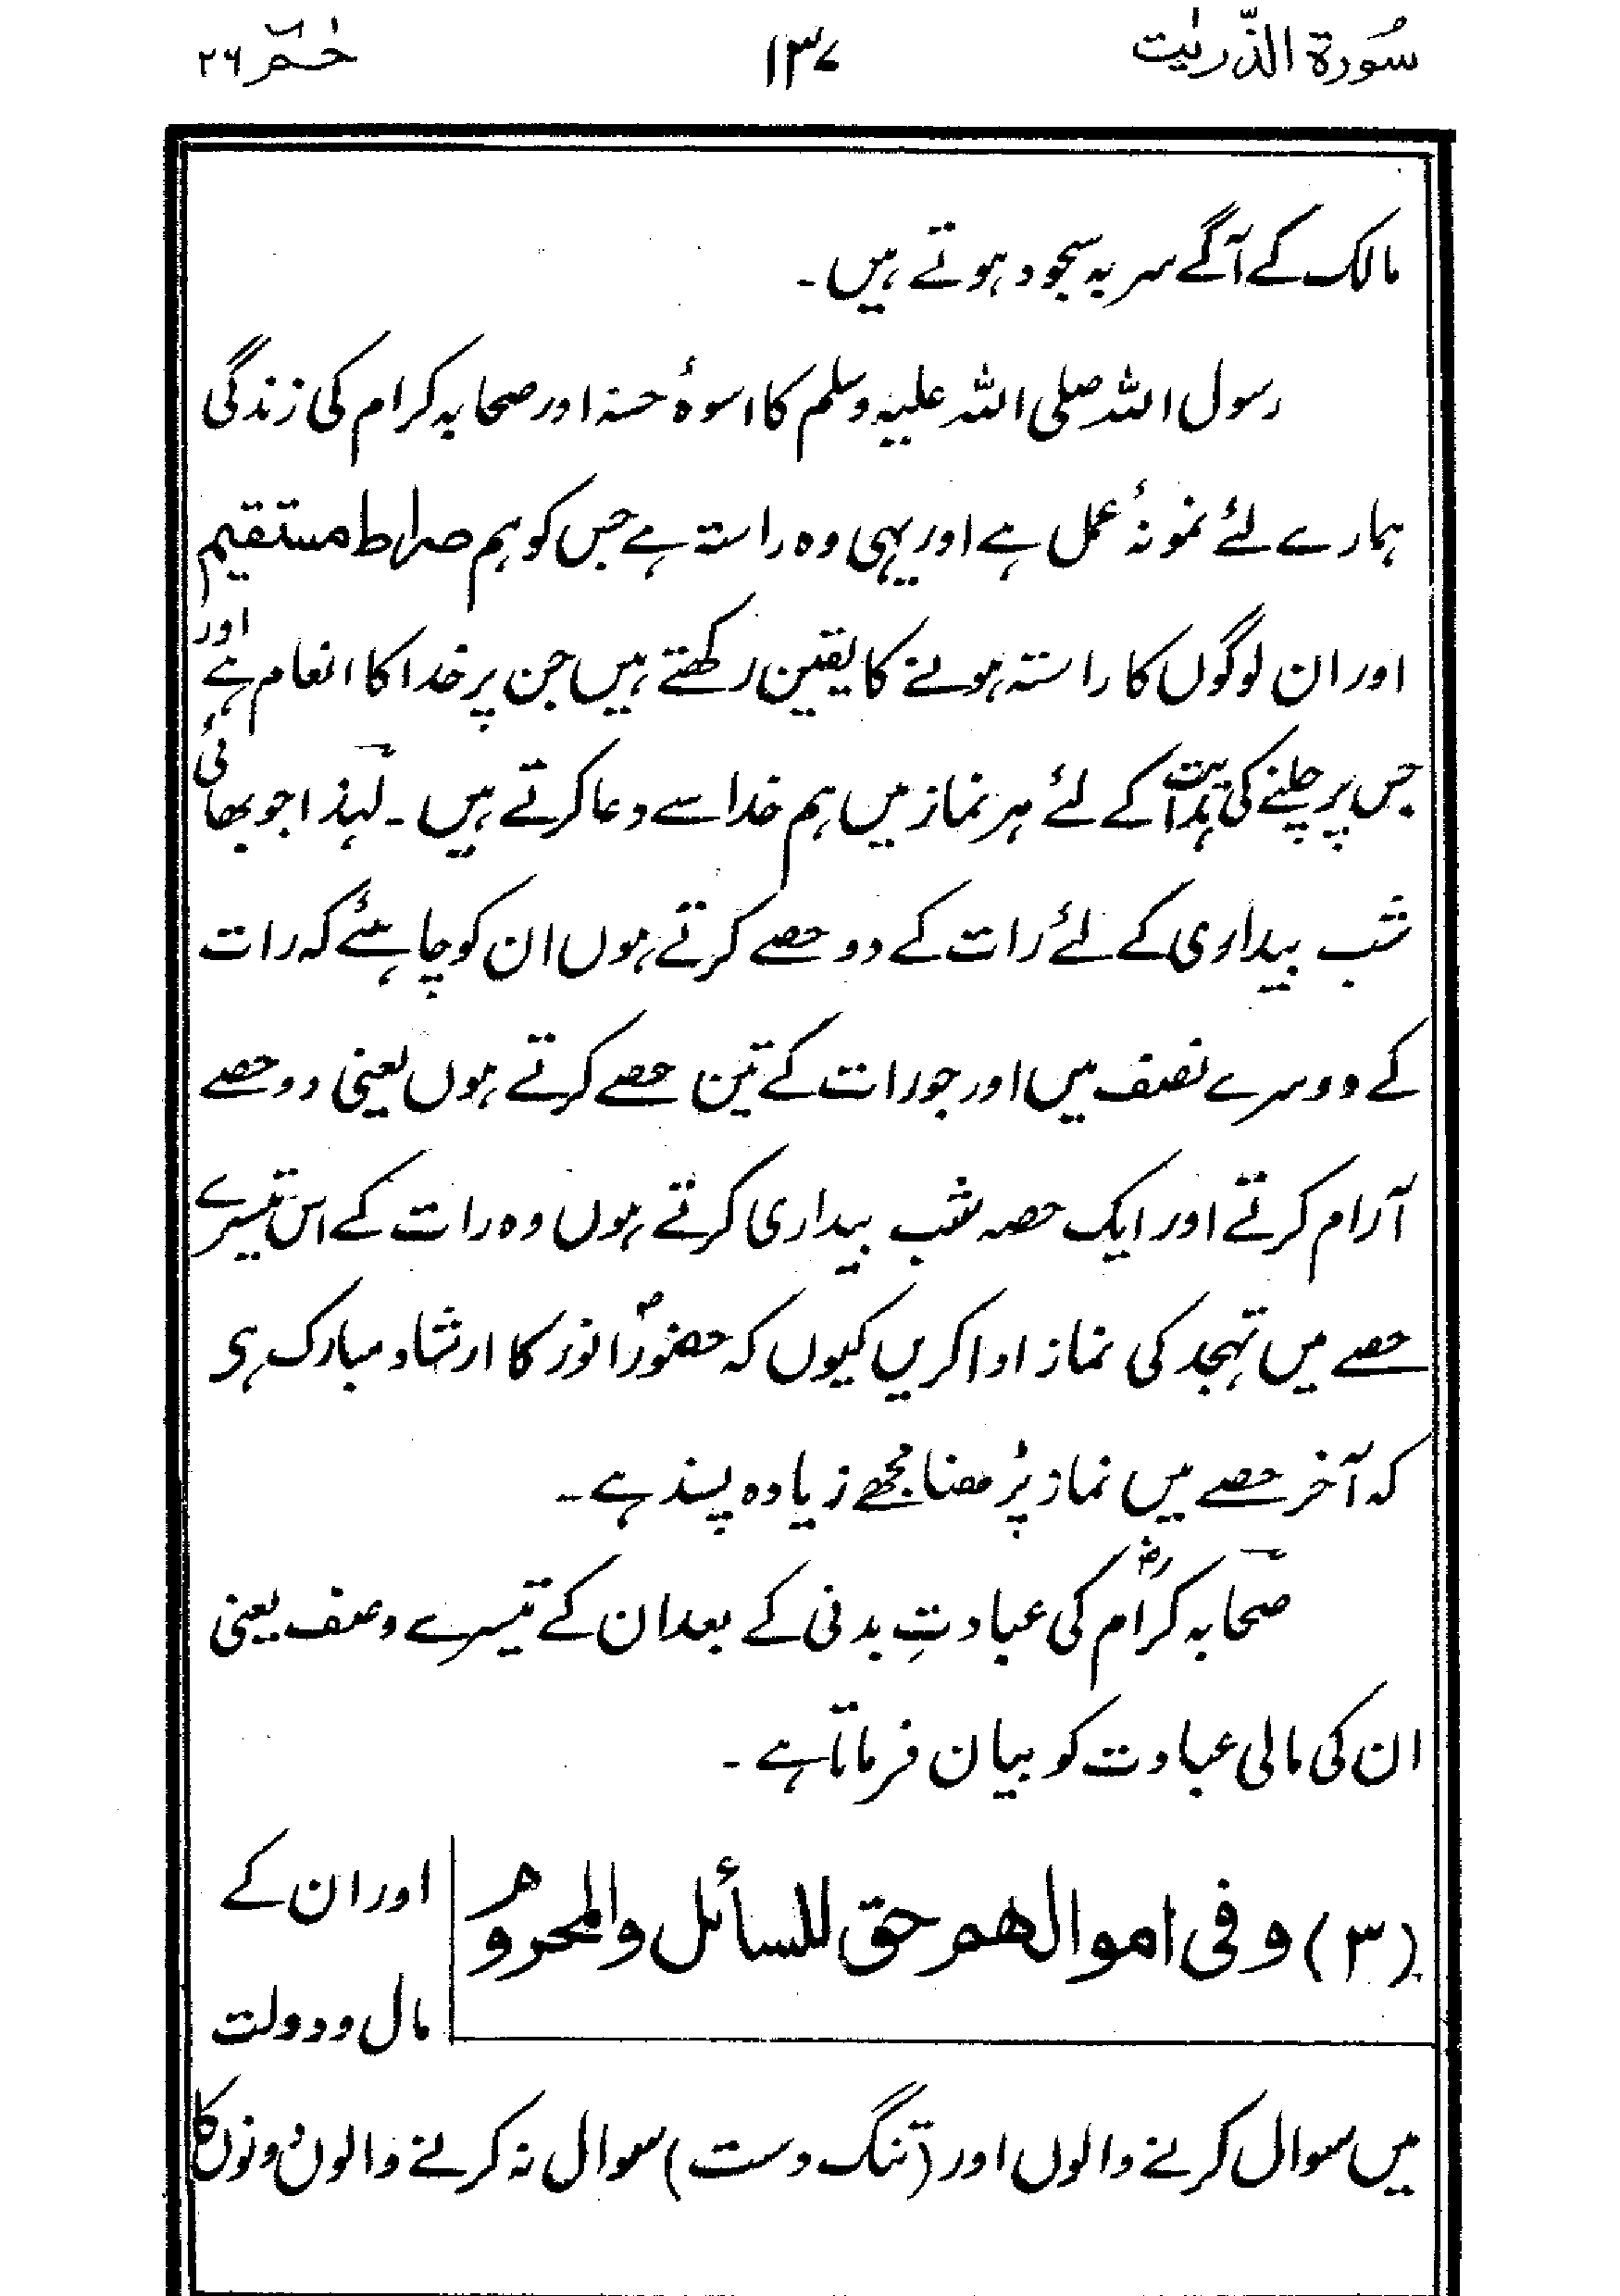 سُورۃ الذّٰریٰت ۱۳۷ حٰمٓ ۲۶
مالک کے آگے سر بہ سجود ہوتے ہیں۔
رسول اللہ صلی اللہ علیہ وسلم کا اسوۂ حسنہ اور صحابہ کرام کی زندگی
ہمارے لئے نمونۂ عمل ہے اور یہی وہ راستہ ہے جس کو ہم صراط مستقیم
اور ان لوگوں کا راستہ ہونے کا یقین رکھتے ہیں جن پر خدا کا انعام ہے اور
جس پر چلنے کی ہدایت کے لئے ہر نماز میں ہم خدا سے دعا کرتے ہیں۔ لہٰذا جو بھائی
شب بیداری کے لئے رات کے دو حصے کرتے ہوں ان کو چاہئے کہ رات
کے دوسرے نصف میں اور جو رات کے تین حصے کرتے ہوں یعنی دو حصے
آرام کرتے اور ایک حصہ شب بیداری کرتے ہوں وہ رات کے اس تیسرے
حصے میں تہجد کی نماز ادا کریں کیوں کہ حضورؐ انور کا ارشاد مبارک ہی
کہ آخر حصے میں نماز پڑھنا مجھے زیادہ پسند ہے۔
صحابہ کرامؓ کی عبادتِ بدنی کے بعد ان کے تیسرے وصف یعنی
ان کی مالی عبادت کو بیان فرماتا ہے۔
(۳) وفی اموالھم حق للسائل والمحروم اور ان کے
مال و دولت
میں سوال کرنے والوں اور (تنگ دست) سوال نہ کرنے والوں دونوں کا